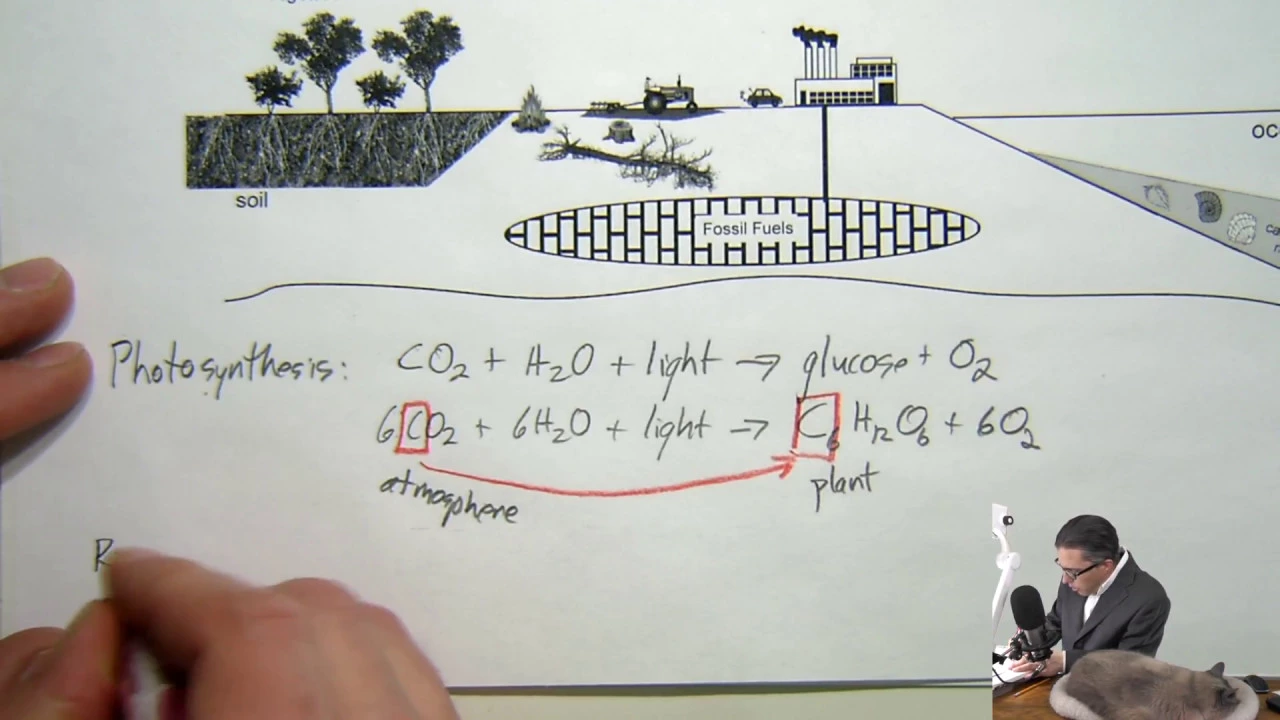 soil
Fossil Fuels
Photosynthesis: CO2 + H2O + light → glucose + O2
6CO2 + 6H2O + light → C6 H12O6 + 6O2
atmosphere
plant
R